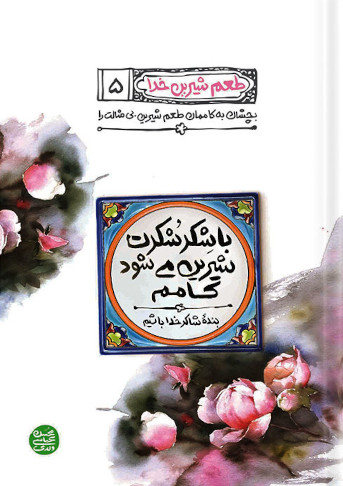 طعم شیرین خدا
۵
بچشان به کاممان طعم شیرین بی مثالت را
با شکر شُکرت
شیرین می شود
کامم
بندهٔ شاکر خدا باشیم
محسن
عباسی
ولدی